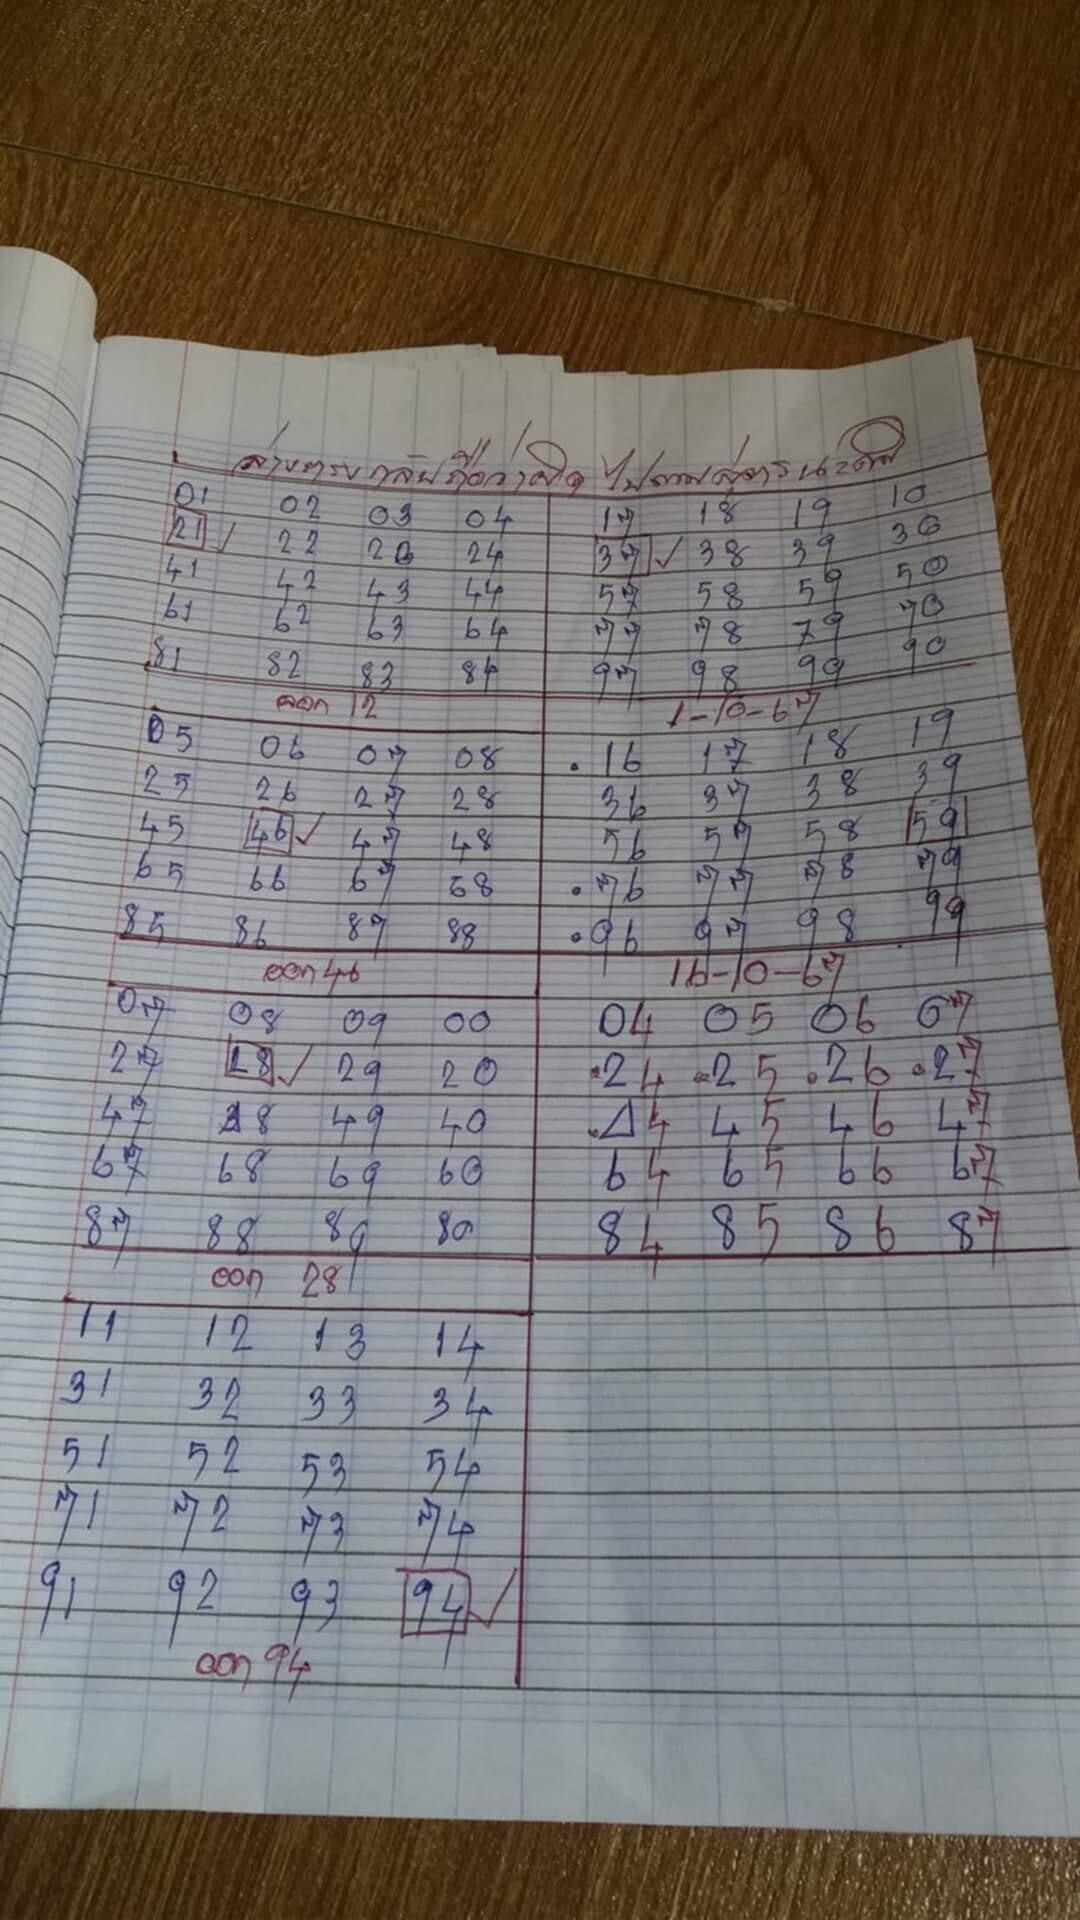 ล่างตรง กลับถือว่าผิด ไปตามสูตรนะคับ
01 02 03 04 17 18 19 10
21 22 23 24 37 38 39 30
41 42 43 44 57 58 59 50
61 62 63 64 77 78 79 70
81 82 83 84 97 98 99 90
ออก 12 1-10-67
05 06 07 08 .16 17 18 19
25 26 27 28 36 37 38 39
45 46 47 48 56 57 58 59
65 66 67 68 .76 77 78 79
85 86 87 88 .96 97 98 99
ออก 46 16-10-67
07 08 09 00 04 05 06 07
27 28 29 20 .24 .25 .26 .27
47 48 49 40 .44 45 46 47
67 68 69 60 64 65 66 67
87 88 89 80 84 85 86 87
ออก 28
11 12 13 14
31 32 33 34
51 52 53 54
71 72 73 74
91 92 93 94
ออก 94